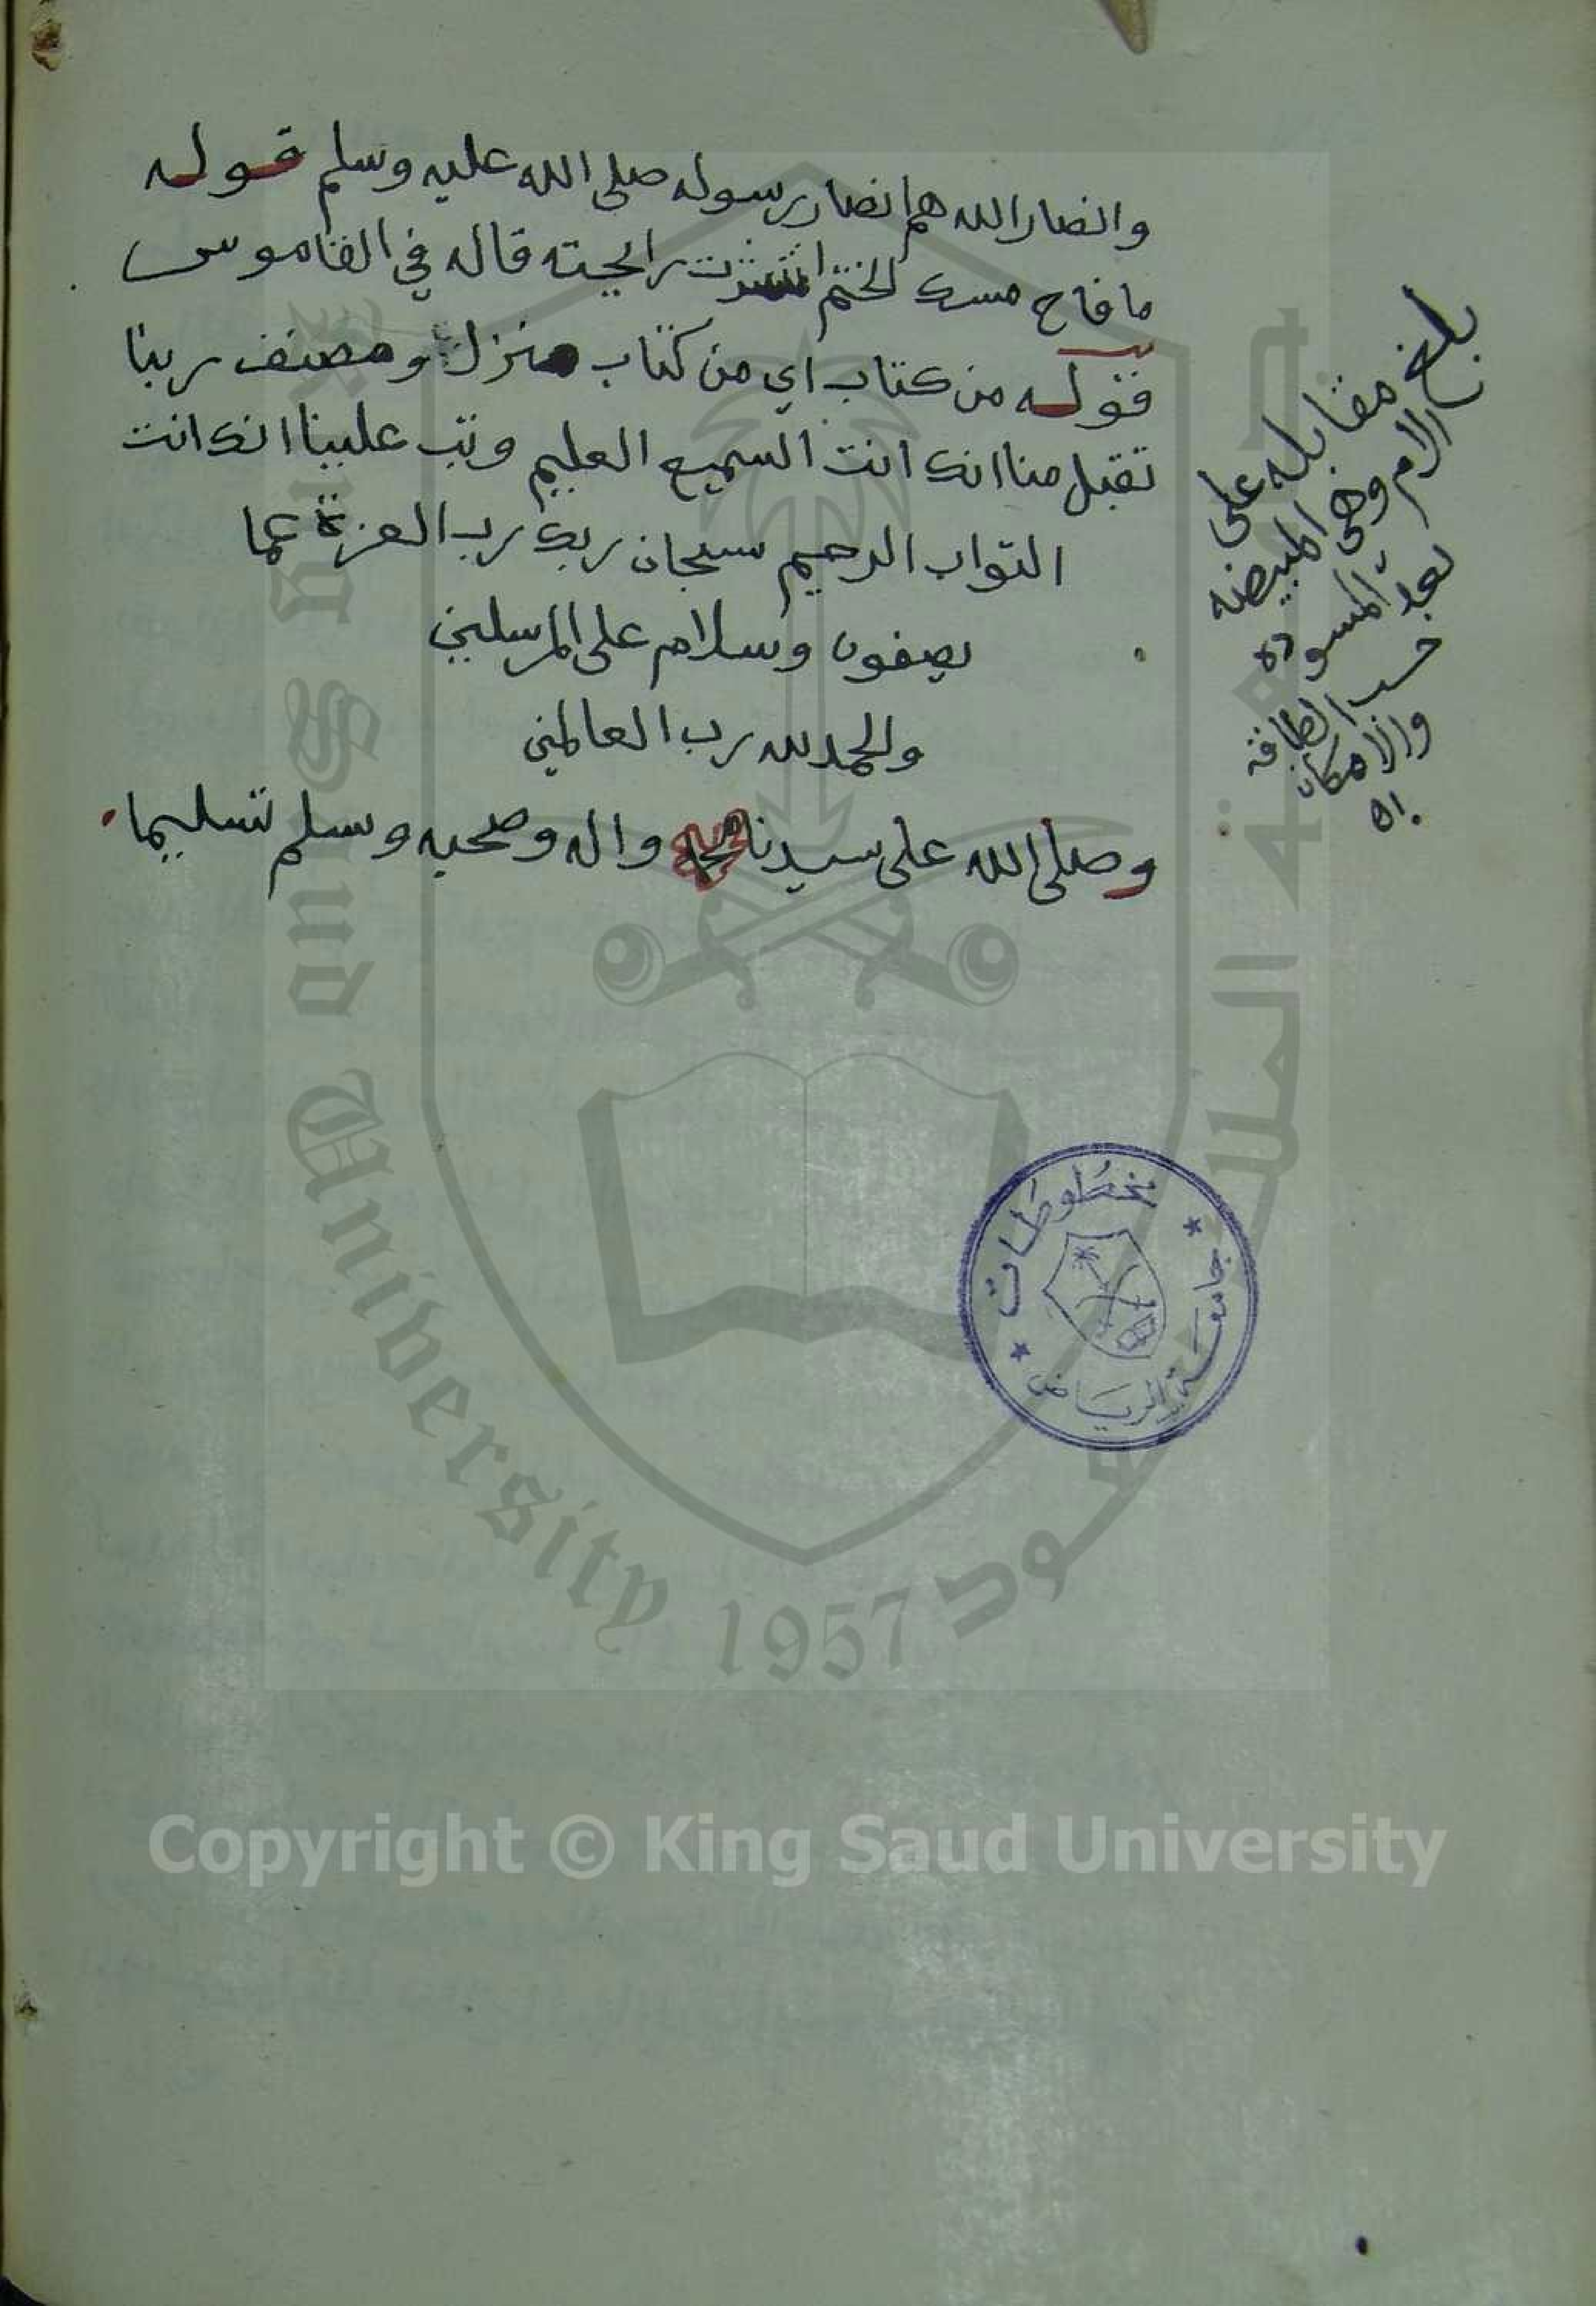 وانصار الله هم انصار رسوله صلى الله عليه وسلم قوله
ما فاح مسك الختم انتشرت رايحته قاله في القاموس
قوله من كتاب اي من كتاب منزل ومصنف ربنا
تقبل منا انك انت السميع العليم وتب علينا انك انت
التواب الرحيم سبحان ربك رب العزة عما
يصفون وسلام على المرسلين
والحمد لله رب العالمين
وصلى الله على سيدنا محمد واله وصحبه وسلم تسليما
بلغ مقابله على
الام وهى المبيضه
بعد المسوده
حسب الطاقه
والامكان
اه
مخطوطات
جامعة الرياض
King Saud University 1957
جامعة الملك سعود
Copyright © King Saud University